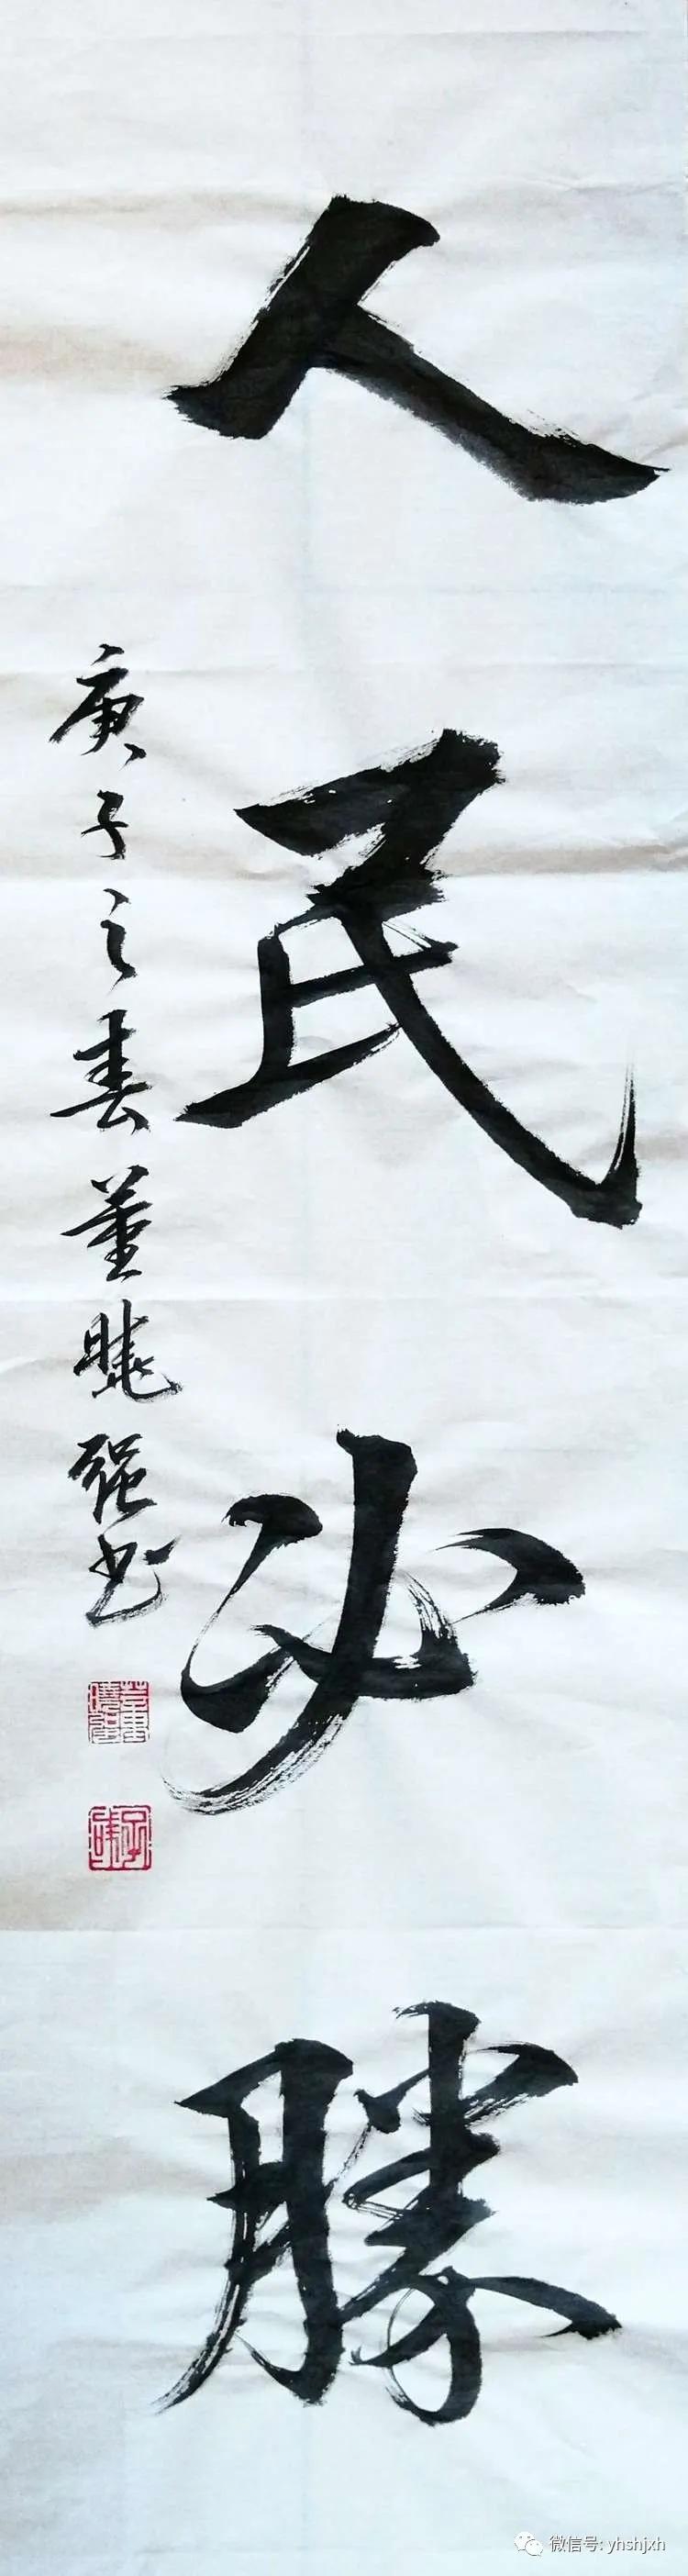 人民必勝
庚子之春董曉强书
董曉强
微信号: yhshjxh